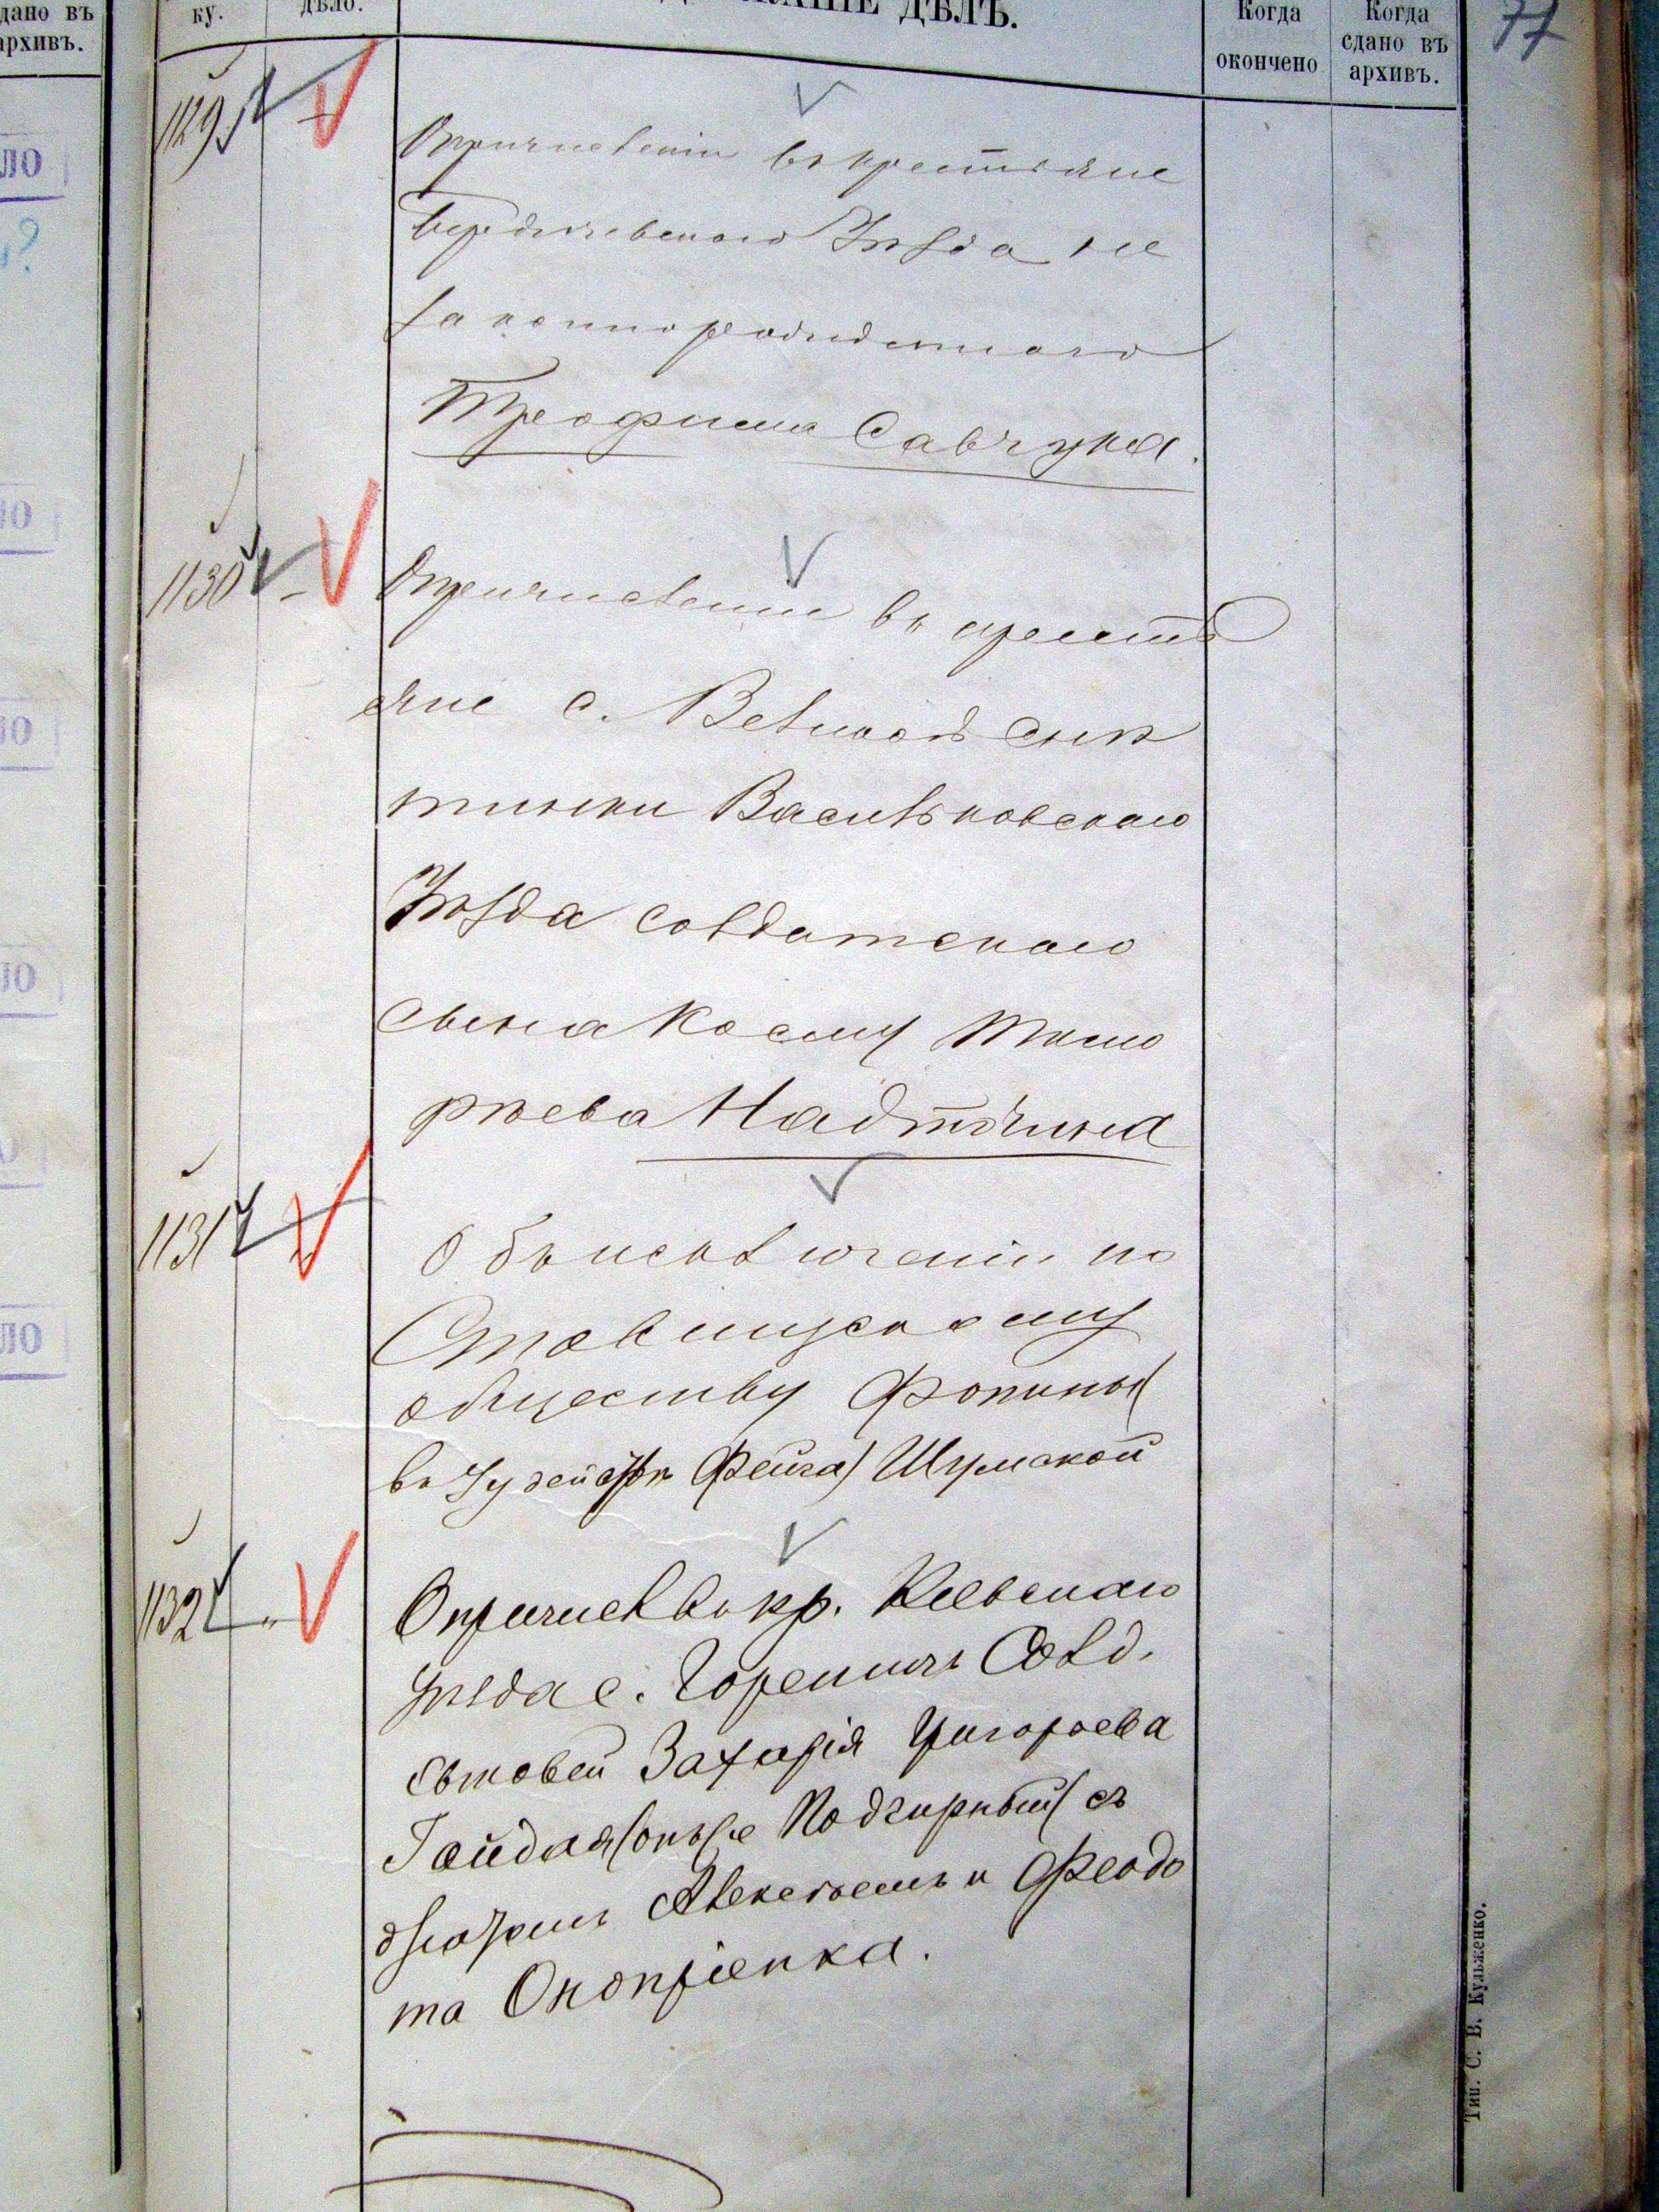 дано въ
архивъ.
ку.
дѣло.
ДѢЛЪ.
Когда
окончено
Когда
сдано въ
архивъ.
77
1129
О причисленіи въ крестьяне
Бердичевскаго Уѣзда не
законнорожденнаго
Трофима Савчука.
1130
О причисленіи въ кресть
яне с. Великой Сни
тинки Васильковскаго
Уѣзда солдатскаго
сына Косму Тимо
фѣева Надточина
1131
Объ исключеніи по
Ставищскому
обществу Фонины
въ Іудействѣ Фейга) Шумской
1132
О причисл въ кр. Кіевскаго
уѣзда с. Гореничъ Солд.
сыновей Захарія Григорьева
Гайдая (онъ же Подгирный) съ
Алексѣемъ и Феодо
та Оноприенка.
Тип. С. В. Кульженко.
ло
?
ло
ло
ло
ло